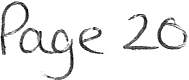 Page 20